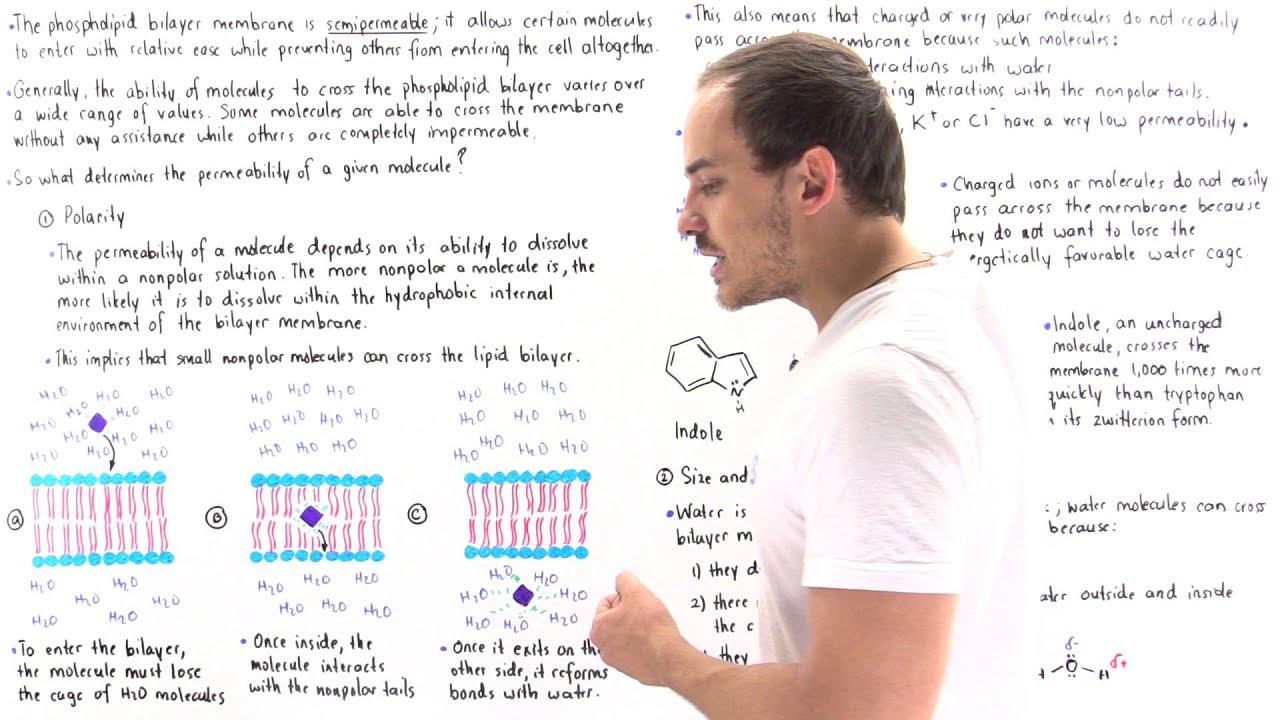 •The phospholipid bilayer membrane is semipermeable; it allows certain molecules
to enter with relative ease while preventing others from entering the cell altogether.
•Generally, the ability of molecules to cross the phospholipid bilayer varies over
a wide range of values. Some molecules are able to cross the membrane
without any assistance while others are completely impermeable.
•So what determines the permeability of a given molecule?
① Polarity
•The permeability of a molecule depends on its ability to dissolve
within a nonpolar solution. The more nonpolar a molecule is, the
more likely it is to dissolve within the hydrophobic internal
environment of the bilayer membrane.
•This implies that small nonpolar molecules can cross the lipid bilayer.
H2O H2O H2O
H2O H2O
H2O H2O H2O H2O
H2O H2O H2O
A
H2O H2O
H2O H2O
H2O
•To enter the bilayer,
the molecule must lose
the cage of H2O molecules
H2O H2O H2O
H2O H2O H2O H2O
H2O H2O H2O
B
H2O H2O H2O
H2O H2O H2O
•Once inside, the
molecule interacts
with the nonpolar tails
H2O H2O H2O
H2O H2O H2O
H2O H2O H2O H2O
C
H2O H2O
H2O H2O
H2O H2O H2O
•Once it exits on the
other side, it reforms
bonds with water.
•This also means that charged or very polar molecules do not readily
pass membrane because such molecules:
interactions with water
interactions with the nonpolar tails.
K+ or Cl- have a very low permeability.
•Charged ions or molecules do not easily
pass across the membrane because
they do not want to lose the
energetically favorable water cage.
N
H
Indole
•Indole, an uncharged
molecule, crosses the
membrane 1,000 times more
quickly than tryptophan
its zwitterion form.
② Size and
•Water is
; water molecules can cross
bilayer
because:
1) they
2) there
outside and inside
the
they
δ-
O H δ+